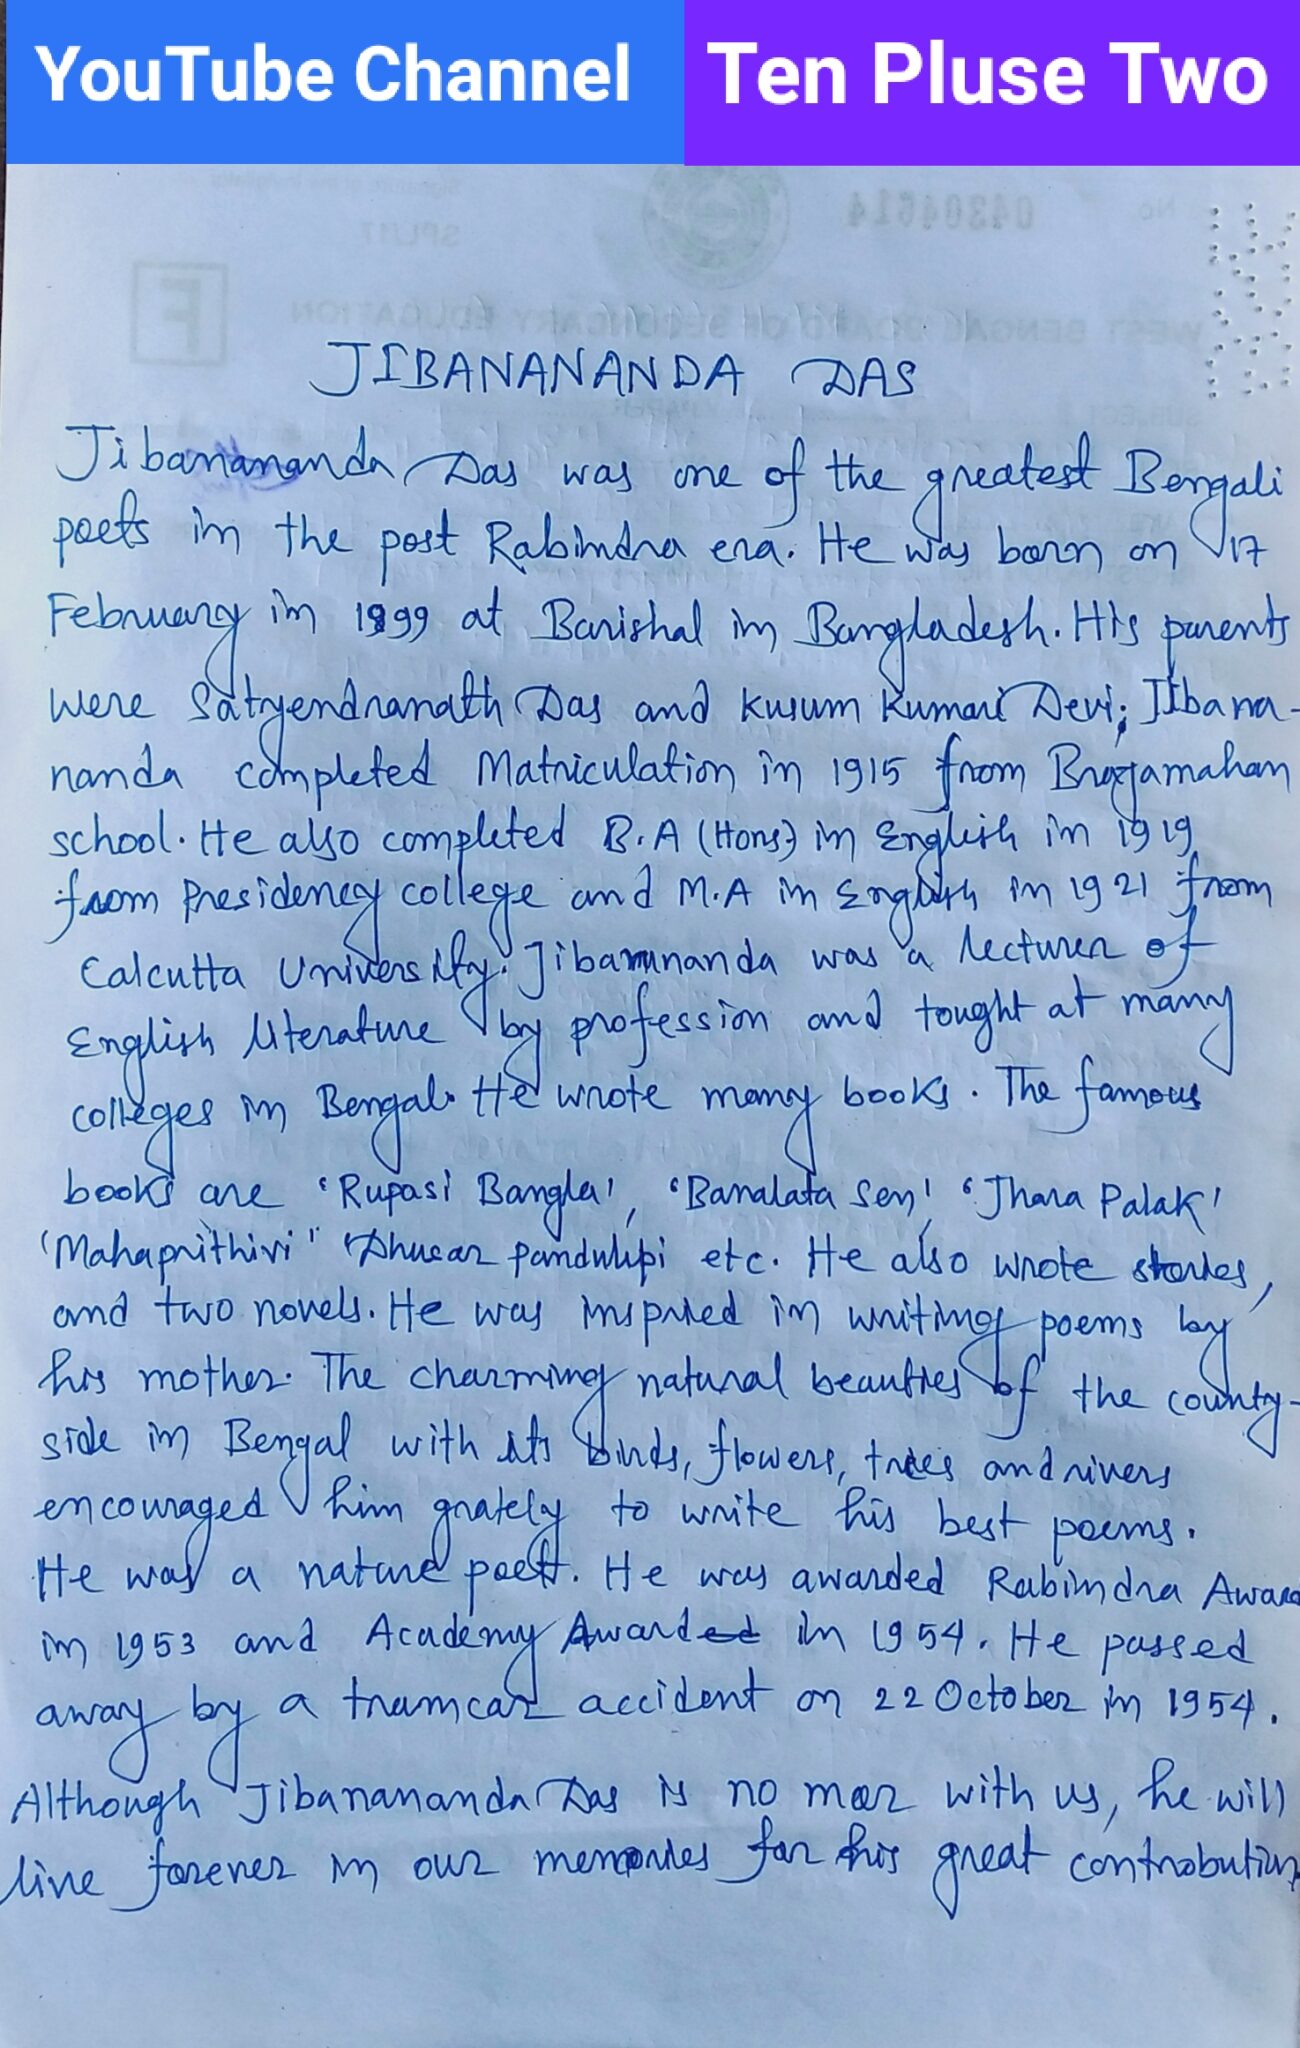 YouTube Channel Ten Pluse Two
JIBANANANDA DAS
Jibanananda Das was one of the greatest Bengali
poets in the post Rabindra era. He was born on 17
February in 1899 at Barishal in Bangladesh. His parents
were Satyendranath Das and Kusum Kumari Devi; Jibana-
nanda completed Matriculation in 1915 from Brajamahan
school. He also completed B.A (Hons) in English in 1919
from Presidency college and M.A in English in 1921 from
Calcutta University. Jibanananda was a lecturer of
English literature by profession and tought at many
colleges in Bengal. He wrote many books. The famous
books are 'Rupasi Bangla', 'Banalata Sen', 'Jhara Palak'
'Mahaprithivi" 'Dhusar pandulipi etc. He also wrote stories,
and two novels. He was inspired in writing poems by
his mother. The charming natural beauties of the county-
side in Bengal with its birds, flowers, trees and rivers
encouraged him grately to write his best poems.
He was a nature poet. He was awarded Rabindra Award
in 1953 and Academy Award in 1954. He passed
away by a tramcar accident on 22 October in 1954.
Although Jibanananda Das is no mor with us, he will
live forever in our memories for his great controbution
No. 04304614
SPL/17
F
WEST BENGAL BOARD OF SECONDARY EDUCATION
SUBJECT